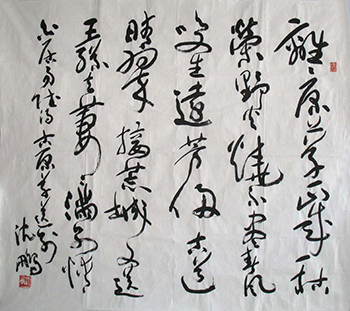 離〻原上草一歲一枯
榮野火燒不盡春風
吹又生遠芳侵古道
晴翠接荒城又送
王孫去萋〻滿別情
白居易賦得古原草送別
沈鵬